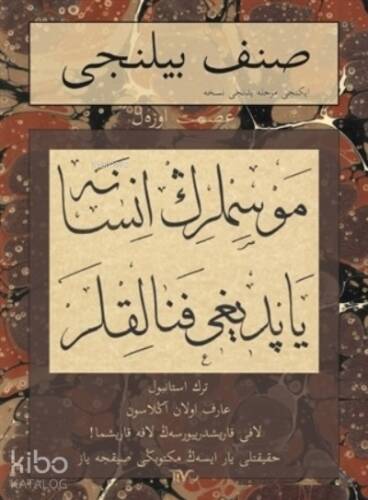 صنف بیلنجی
ایكنجی مرحله یلنجی نسخه
عصمت اوزل
موسملرڭ انسانه
یاپدیغی فنالقلر
ترك استانبول
عارف اولان آڭلاسون
لافی قاریشدیرییورسه‌ڭ لافه قاریشما!
حقیقتلی یار ایسه‌ڭ مكتوبڭی صیقجه یاز
kibo
KATALOG